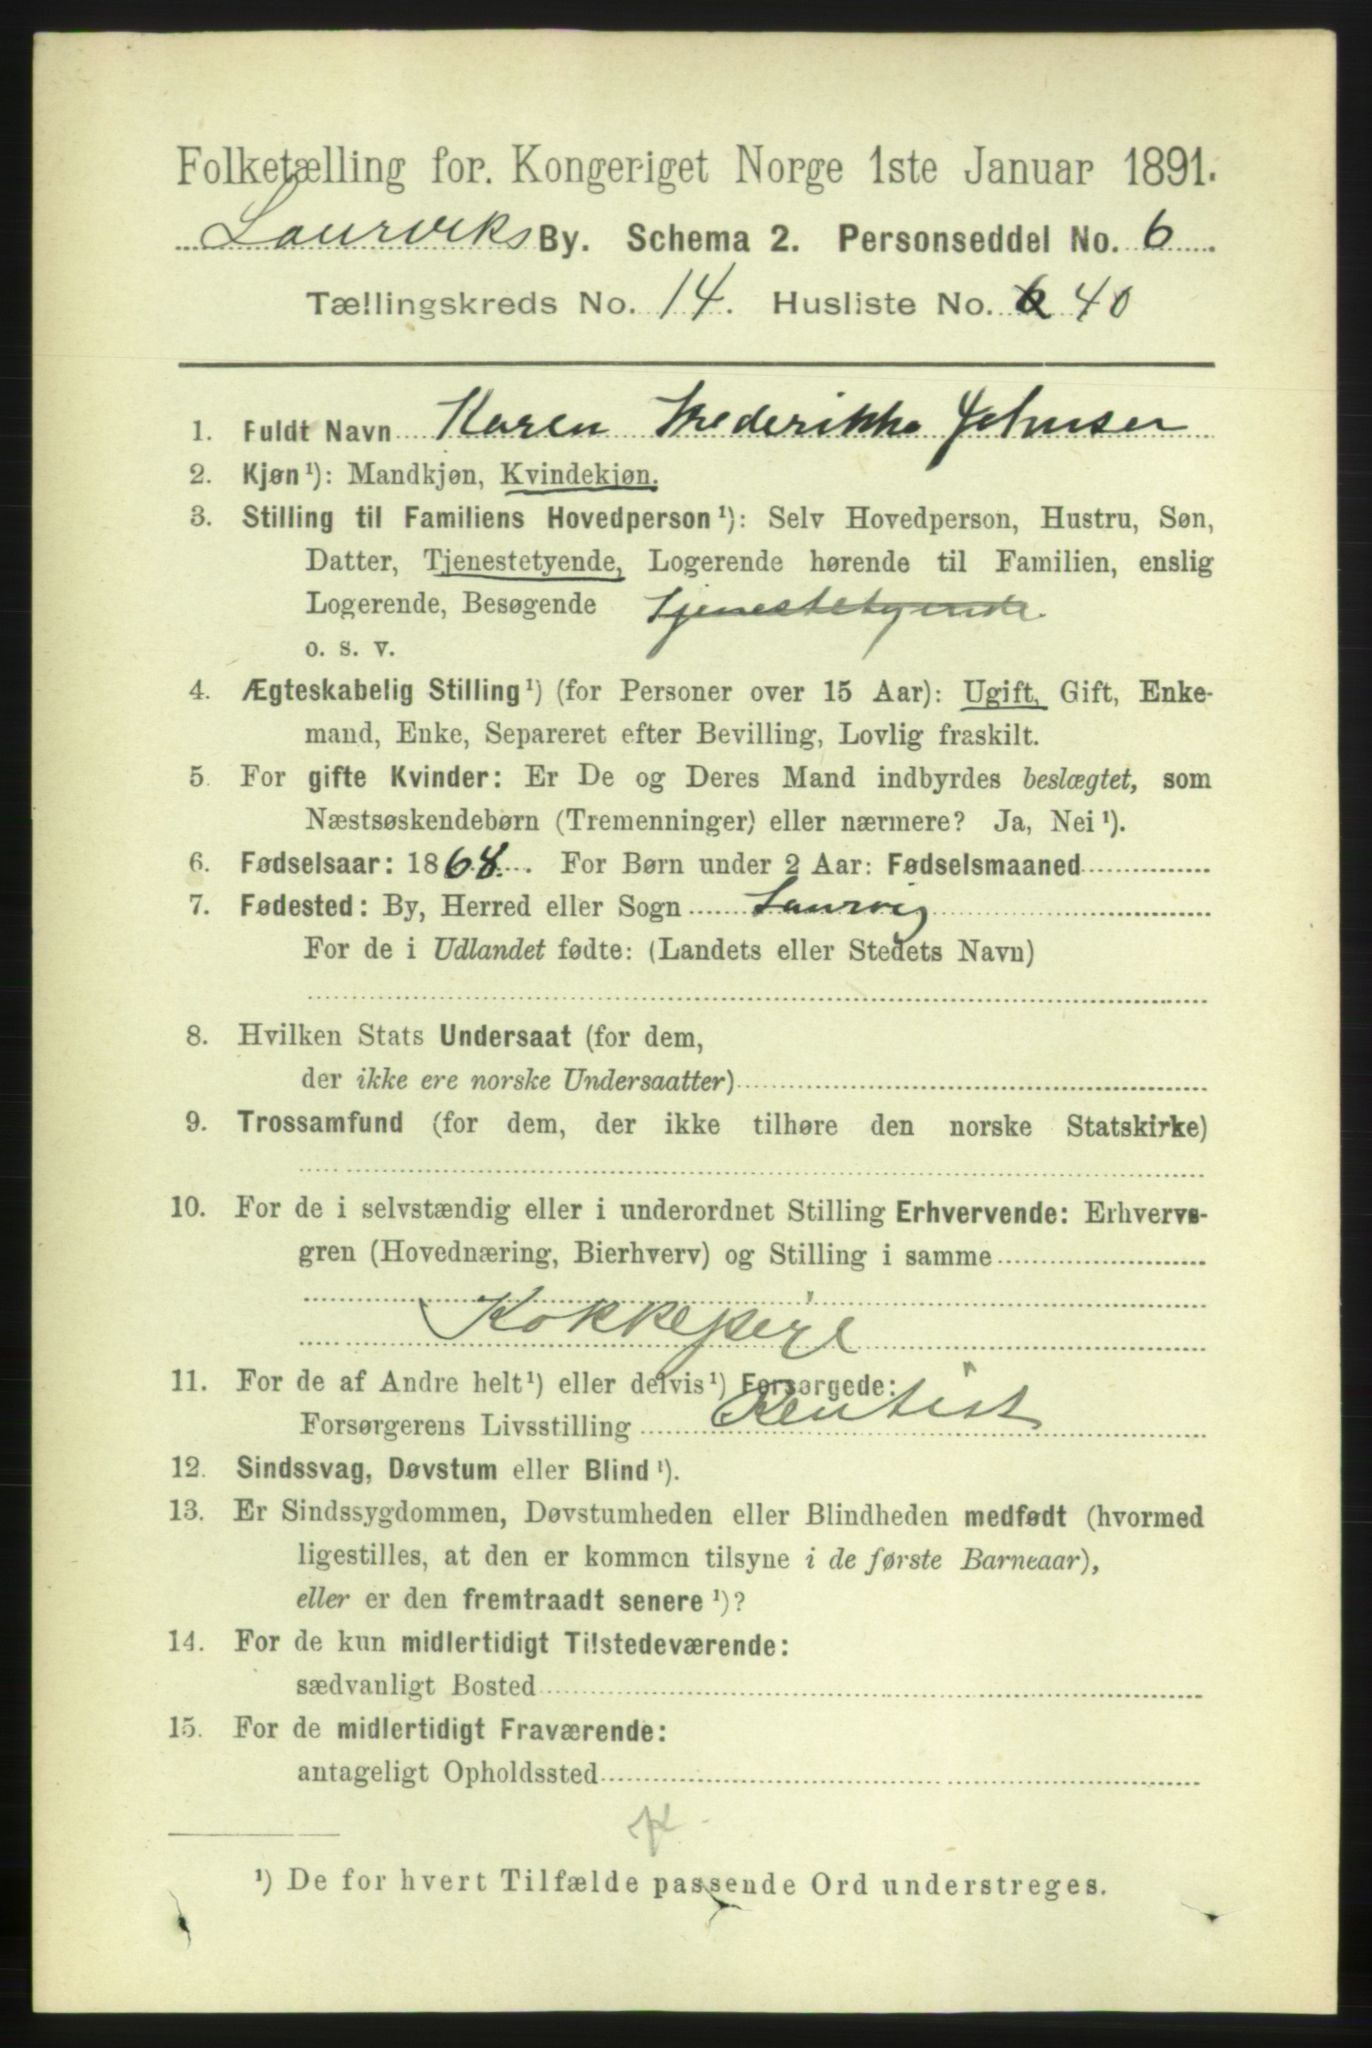 Folketælling for. Kongeriget Norge 1ste Januar 1891.
Laurviks By. Schema 2. Personseddel No. 6
Tællingskreds No. 14. Husliste No. 6 40
1. Fuldt Navn Karen Frederikke Johnsen
2. Kjøn¹): Mandkjøn, Kvindekjøn.
3. Stilling til Familiens Hovedperson¹): Selv Hovedperson, Hustru, Søn,
Datter, Tjenestetyende, Logerende hørende til Familien, enslig
Logerende, Besøgende Tjenestetyende.
o. s. v.
4. Ægteskabelig Stilling¹) (for Personer over 15 Aar): Ugift, Gift, Enke-
mand, Enke, Separeret efter Bevilling, Lovlig fraskilt.
5. For gifte Kvinder: Er De og Deres Mand indbyrdes beslægtet, som
Næstsøskendebørn (Tremenninger) eller nærmere? Ja, Nei¹).
6. Fødselsaar: 1868. For Børn under 2 Aar: Fødselsmaaned
7. Fødested: By, Herred eller Sogn Laurvig
For de i Udlandet fødte: (Landets eller Stedets Navn)
8. Hvilken Stats Undersaat (for dem,
der ikke ere norske Undersaatter)
9. Trossamfund (for dem, der ikke tilhøre den norske Statskirke)
10. For de i selvstændig eller i underordnet Stilling Erhvervende: Erhvervs-
gren (Hovednæring, Bierhverv) og Stilling i samme
Kokkepige
11. For de af Andre helt¹) eller delvis¹) Forsørgede:
Forsørgerens Livsstilling Rentist
12. Sindssvag, Døvstum eller Blind¹).
13. Er Sindssygdommen, Døvstumheden eller Blindheden medfødt (hvormed
ligestilles, at den er kommen tilsyne i de første Barneaar),
eller er den fremtraadt senere¹)?
14. For de kun midlertidigt Tilstedeværende:
sædvanligt Bosted
15. For de midlertidigt Fraværende:
antageligt Opholdssted
¹) De for hvert Tilfælde passende Ord understreges.